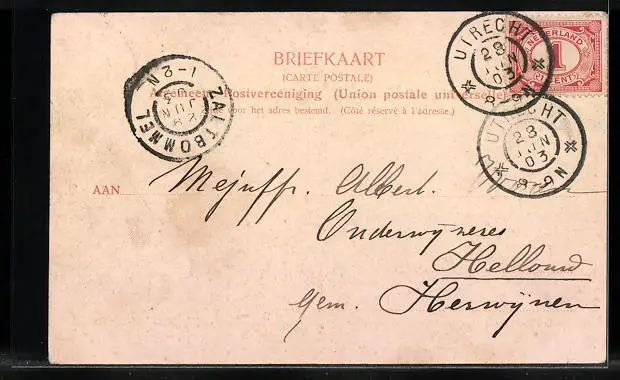 BRIEFKAART
(CARTE POSTALE)
Algemeene Postvereeniging (Union postale universelle)
voor het adres bestemd. (Côté réservé à l'adresse.)
NEDERLAND
1
CENT
UTRECHT
28 JUN 03
7-8 N
UTRECHT
28 JUN 03
8-9 N
ZALTBOMMEL
28 JUN
1-2 N
AAN Mejuffr. Albert.
Onderwijzeres
Hellouw
Gem. Herwijnen